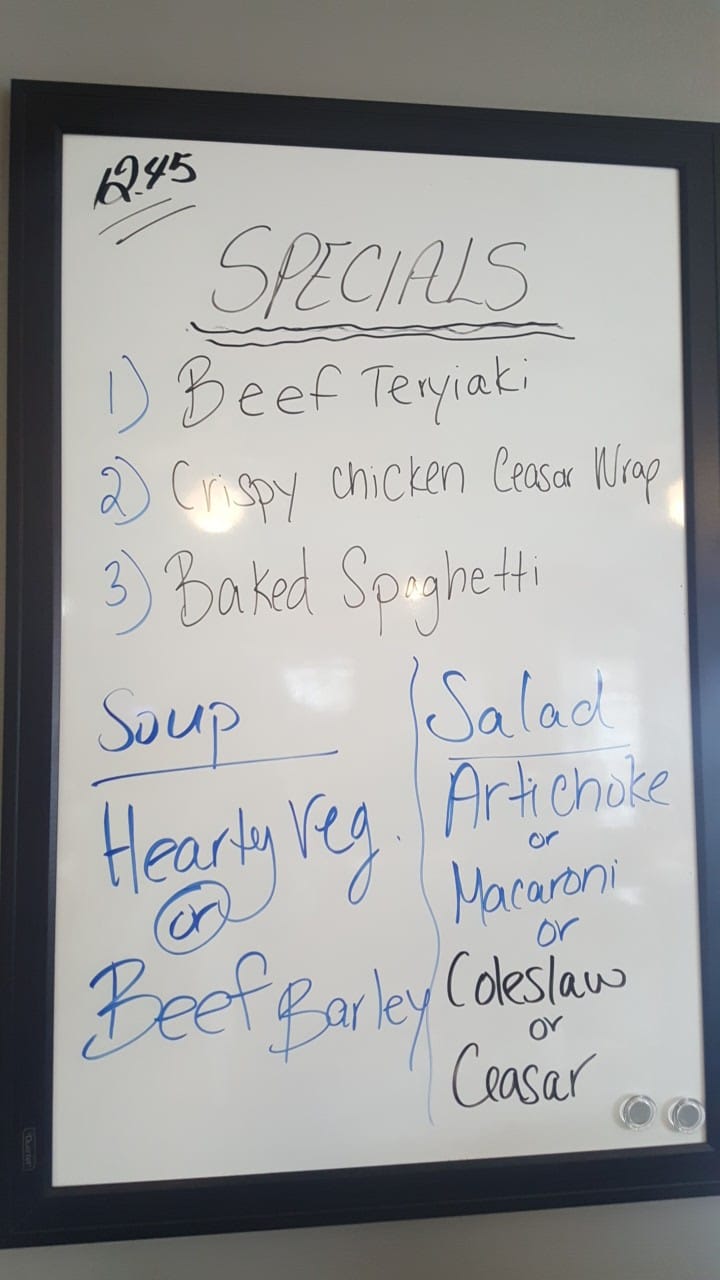 12.45
SPECIALS
1) Beef Teryiaki
2) Crispy chicken Ceasar Wrap
3) Baked Spaghetti
Soup
Hearty Veg.
or
Beef Barley
Salad
Artichoke
or
Macaroni
or
Coleslaw
or
Ceasar
Quartet